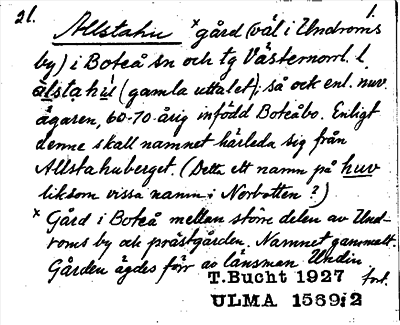 21. 1.
Allstahu × gård (väl i Undroms
by) i Boteå sn och tg Västernorrl. l.
alstahú (gamla uttalet); så ock enl. nuv.
ägaren, 60-70 årig infödd Boteåbo. Enligt
denne skall namnet härleda sig från
Allstahuberget. (Detta ett namn på huv
liksom vissa namn i Norbotten?)
× Gård i Boteå mellan större delen av Und-
roms by och prästgården. Namnet gammalt.
Gården ägdes förr av länsman Undin
T. Bucht 1927 forts.
ULMA 1569:2